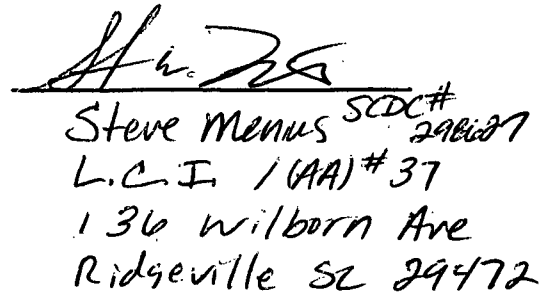 Steve Menius SCDC#
L.C.I. 1(AA)#37
136 Wilborn Ave
Ridgeville SC 29472